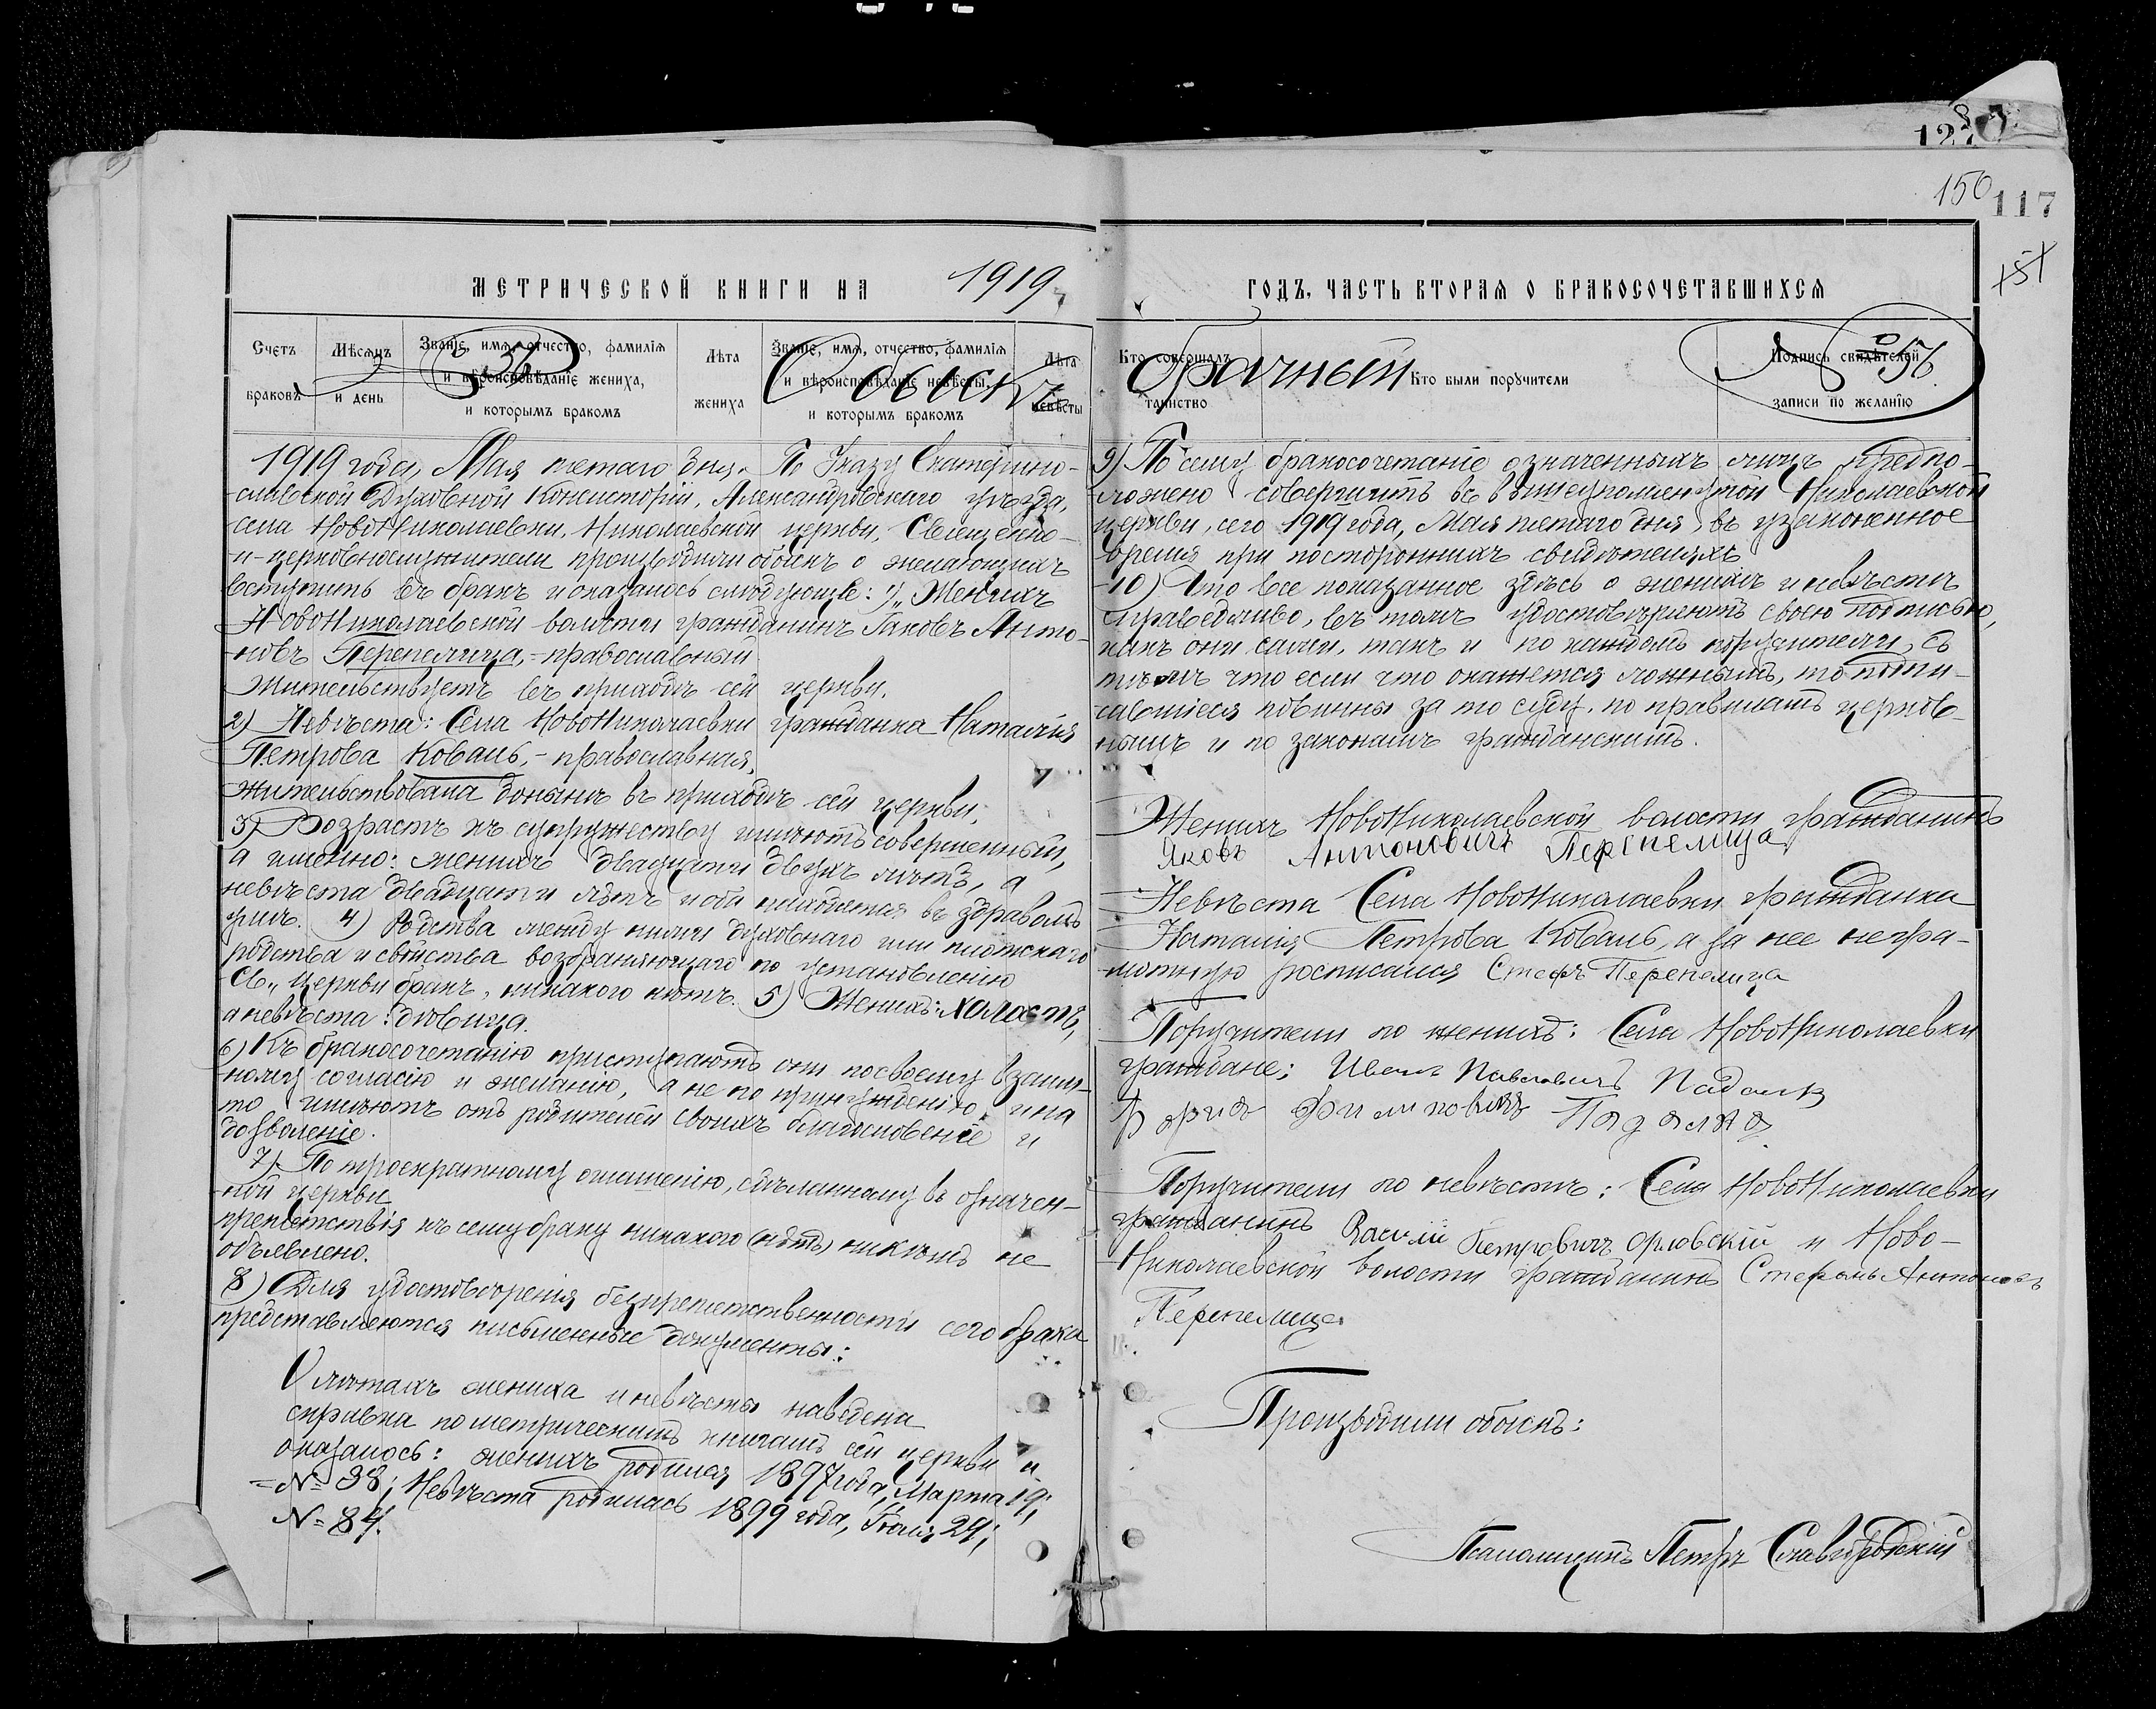 150
117
151
МЕТРИЧЕСКОЙ КНИГИ НА 1919
ГОДЪ, ЧАСТЬ ВТОРАЯ О БРАКОСОЧЕТАВШИХСЯ
Счетъ браковъ
Мѣсяцъ и день
Званіе, имя, отчество, фамилія и вѣроисповѣданіе жениха, и которымъ бракомъ
Лѣта жениха
Званіе, имя, отчество, фамилія и вѣроисповѣданіе невѣсты, и которымъ бракомъ
Лѣта невѣсты
Кто совершалъ таинство
Кто были поручители
Подпись свидѣтелей записи по желанію
Обыскъ
брачный
56
1919 года, Мая пятаго дня, По Указу Екатерино-
славской Духовной Консисторіи, Александровскаго уѣзда,
села НовоНиколаевки, Николаевской церкви, Священно-
и-церковнослужители производили обыскъ о желающихъ
вступить въ бракъ и оказалось слѣдующее: 1) Женихъ
НовоНиколаевской волости гражданинъ Іаковъ Анто-
новъ Перепелица,-православный
Жительствуетъ въ приходѣ сей церкви.
2) Невѣста: Села НовоНиколаевки гражданка Наталія
Петрова Коваль,-православная,
жительствовала донынѣ въ приходѣ сей церкви.
3) Возрастъ къ супружеству имѣютъ совершенный,
а именно: женихъ двадцати двухъ лѣтъ, а
невѣста двадцати лѣтъ и оба находятся въ здравомъ
умѣ. 4) Родства между ними духовнаго или плотскаго
родства и свойства возбраняющаго по установленію
Св. Церкви бракъ, никакого нѣтъ. 5) Женихъ: холостъ,
а невѣста: дѣвица.
6) Къ бракосочетанію приступаютъ они по своему взаим-
ному согласію и желанію, а не по принужденію, и на
то имѣютъ отъ родителей своихъ благословеніе и
дозволеніе.
7) По троекратному оглашенію, сдѣланному въ означен-
ной церкви
препятствія къ сему браку никакого (нѣтъ) никѣмъ не
объявлено.
8) Для удостовѣренія безпрепятственности сего брака
представляются письменные документы:
О лѣтахъ жениха и невѣсты наведена
справка по метрическимъ книгамъ сей церкви и
оказалось: женихъ родился 1897 года, Марта 19,
№ 38; Невѣста родилась 1899 года, 24,
№ 84.
9) По сему бракосочетаніе означенныхъ лицъ предпо-
ложено совершить въ вышеупомянутой Николаевской
церкви, сего 1919 года, Мая пятаго дня, въ узаконенное
время при постороннихъ свидѣтеляхъ
10) Что все показанное здѣсь о женихѣ и невѣстѣ
справедливо, въ томъ удостовѣряютъ своею подписью,
какъ они сами, такъ и по каждомъ поручители, съ
тѣмъ что если что окажется ложнымъ, то подпи-
савшіеся повинны за то суду, по правиламъ церков-
нымъ и по законамъ гражданскимъ.
Женихъ НовоНиколаевской волости гражданинъ
Яковъ Антоновичъ Перепелица
Невѣста Села НовоНиколаевки гражданка
Наталія Петрова Коваль, а за нее негра-
мотную росписался Стефъ Перепелица
Поручители по женихѣ: Села НовоНиколаевки
граждане: Иванъ Павловичъ
Филиповичъ
Поручители по невѣстѣ: Села НовоНиколаевки
гражданинъ Василій Петровичъ Орловскій и Ново-
Николаевской волости гражданинъ Стефанъ Антоновъ
Перепелица
Производили обыскъ:
Псаломщикъ Петръ